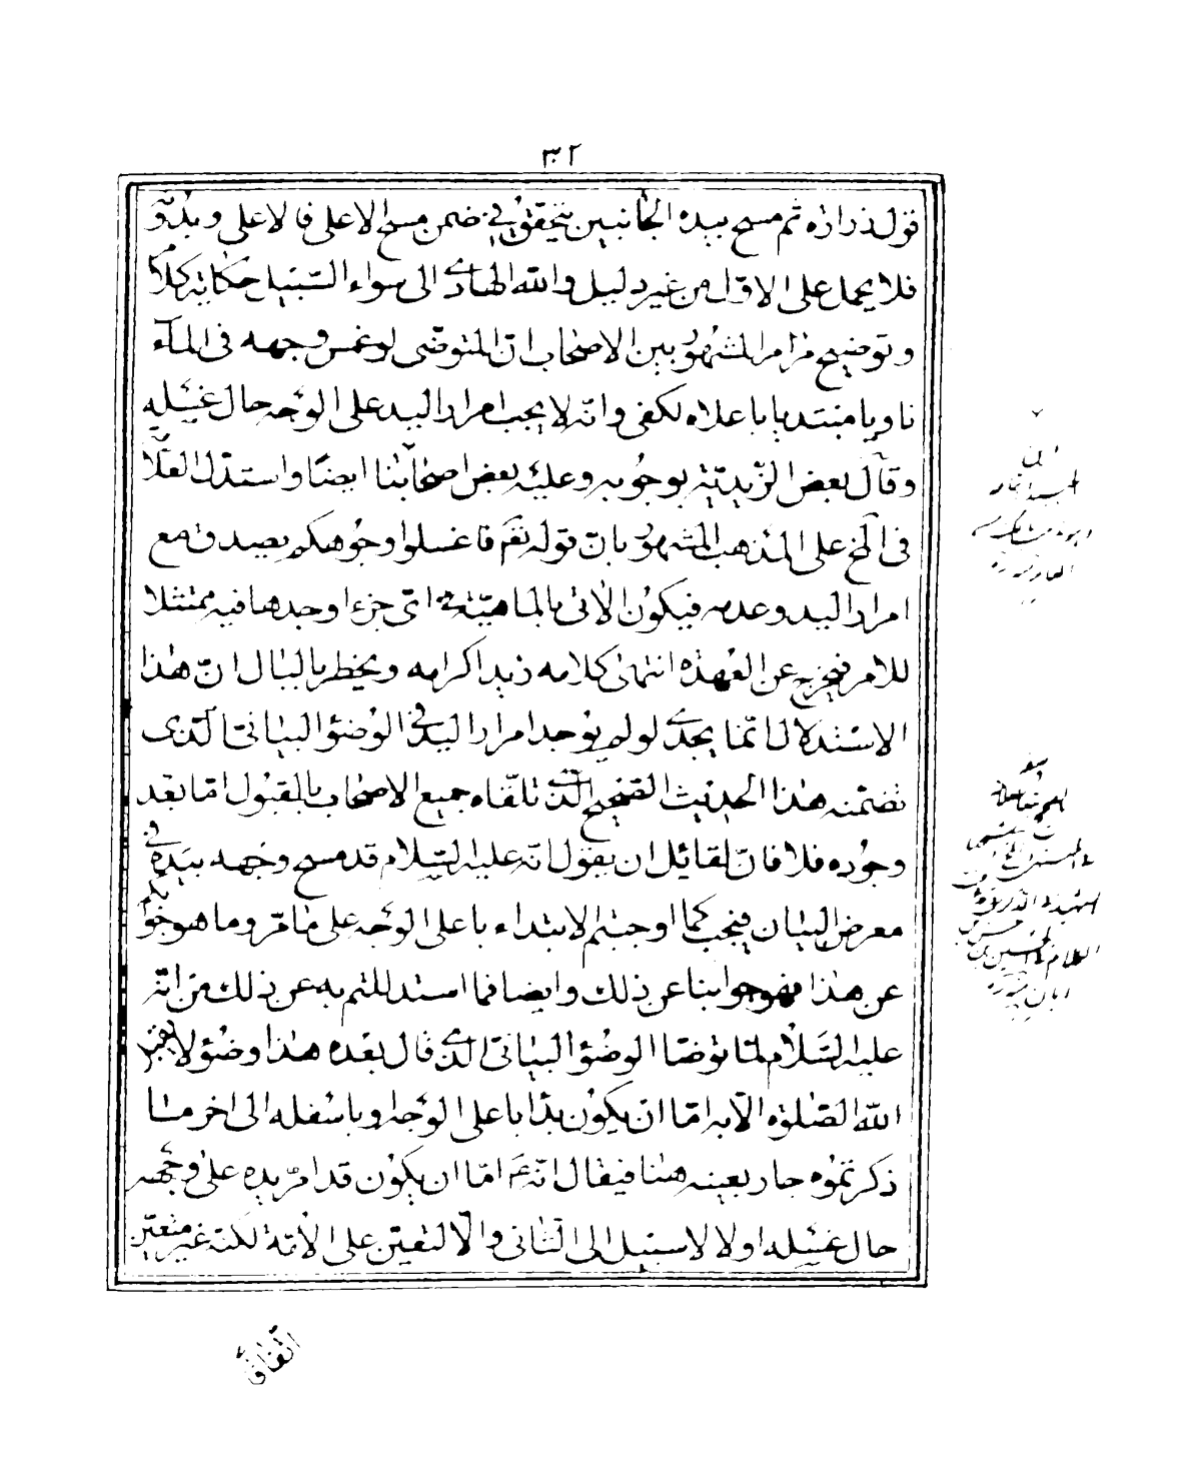 ٣٢
قول زراره ثم مسح بيده الجانبين يتحقق في ضمن مسح الاعلى فالاعلى وبدونه
فلا يحمل على الاول من غير دليل والله الهادى الى سواء السبيل حكاية كلام
وتوضيح مرام المشهور بين الاصحاب ان المتوضى لو غمس وجهه فى الماء
ناويا مبتديا باعلاه لكفى وانه لا يجب امرار اليد على الوجه حال غسله
وقال بعض الزيدية بوجوبه وعليه بعض اصحابنا ايضا واستدل العلامة
فى لخ على المذهب المشهور بان قوله تعم فاغسلوا وجوهكم يصدق مع
امرار اليد وعدمه فيكون الاتى بالماهية فى اى جزء اوجدها فيه ممتثلا
للامر فيخرج عن العهدة انتهى كلامه زيد اكرامه ويخطر بالبال ان هذا
الاستدلال انما يجدى لو لم يوجد امرار اليد فى الوضؤ البيانى الذى
تضمنه هذا الحديث الصحيح الذى تلقاه جميع الاصحاب بالقبول اما بعد
وجوده فلا فان لقائل ان يقول انه عليه السلام قد مسح وجهه بيده فى
معرض البيان فيجب كما اوجبتم الابتداء باعلى الوجه على ما مر وما هو جوابكم
عن هذا فهو جوابنا عن ذلك وايضا فما استدللتم به عن ذلك من انه
عليه السلام لما توضا الوضؤ البيانى الذى قال بعده هذا وضؤ لا يقبل
الله الصلوة الا به اما ان يكون بدا باعلى الوجه او باسفله الى اخر ما
ذكرتموه جار بعينه هنا فيقال انه ع اما ان يكون قد امر يده على وجهه
حال غسله او لا لا سبيل الى الثانى والا لتعين على الامة لكنه غير متعين
اتفاقا